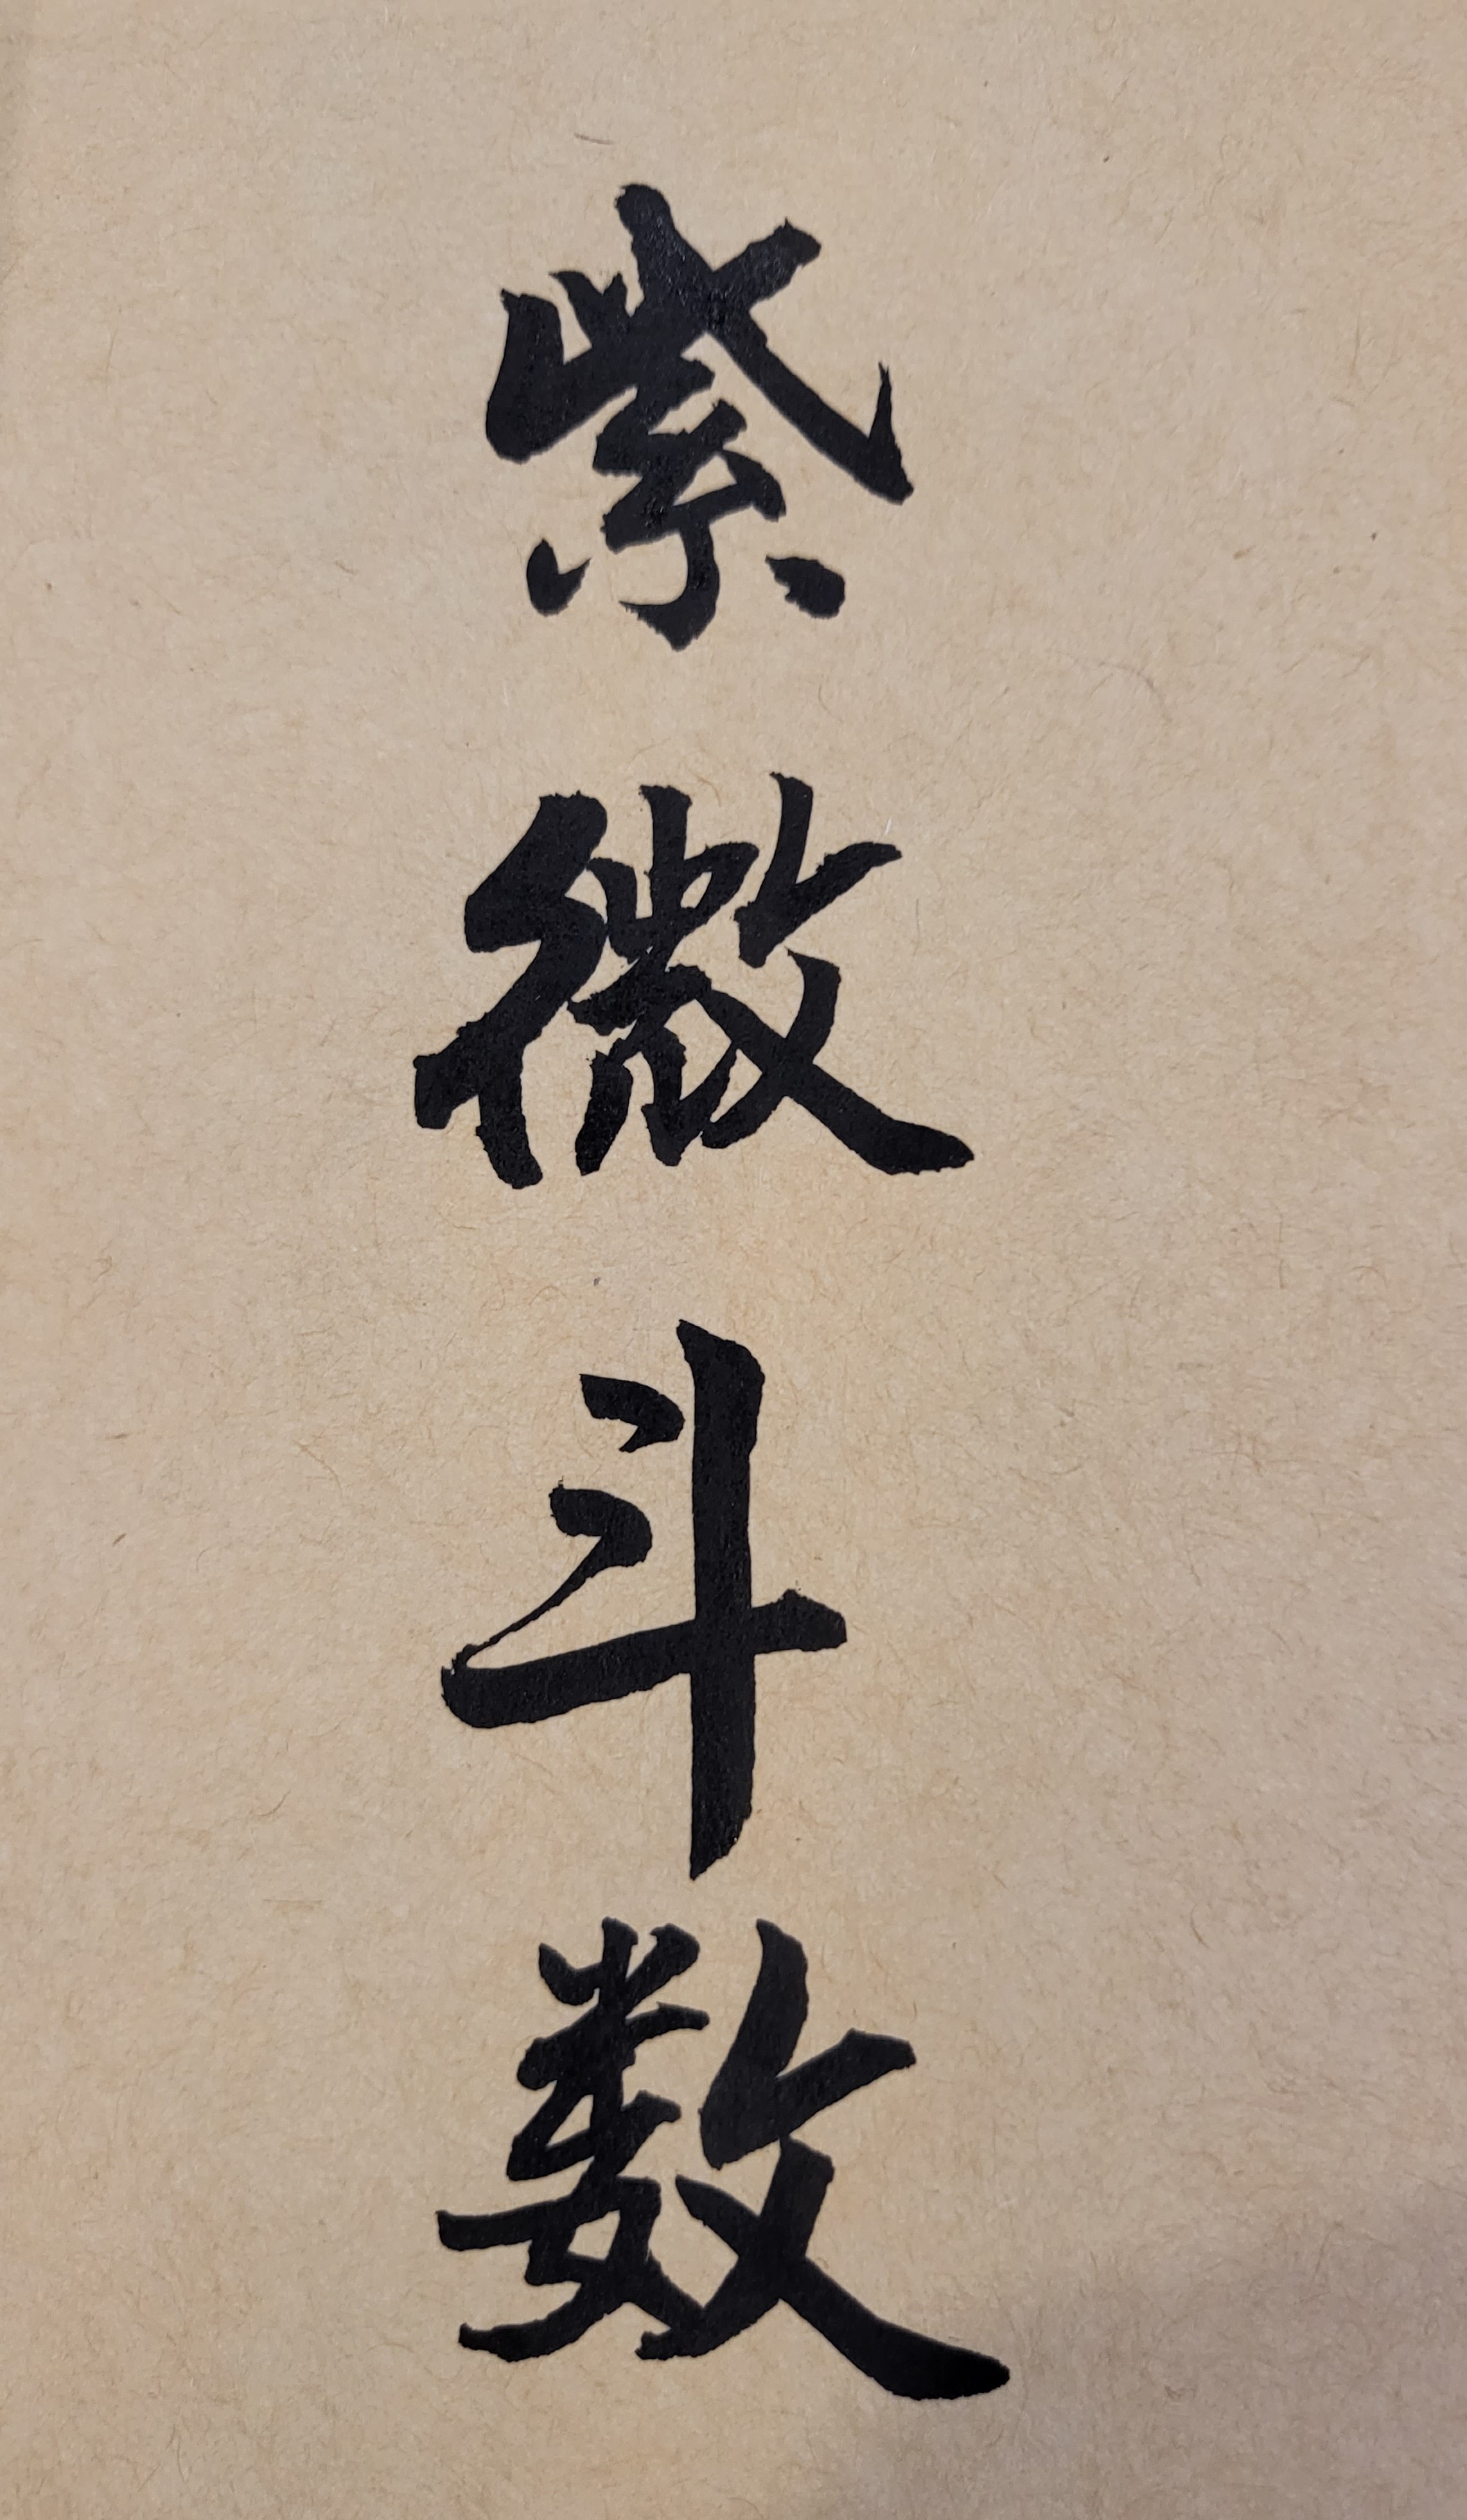 紫微斗数